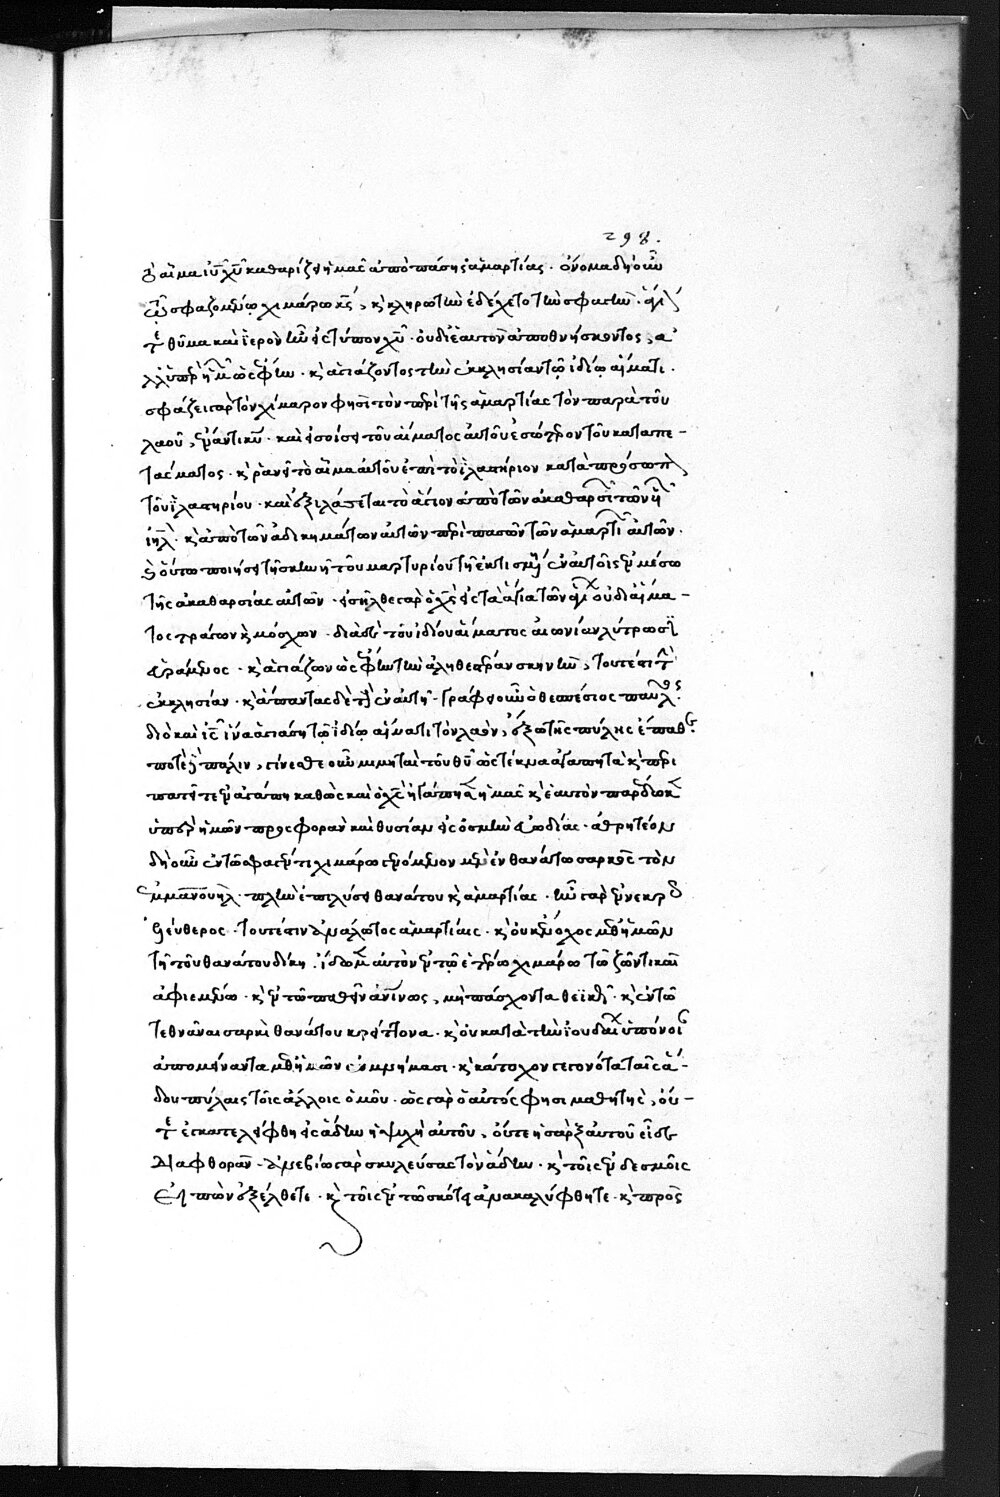 298.
τὸ αἷμα ἰυ χυ καθαρίζει ἡμᾶς ἀπὸ πάσης ἁμαρτίας · ὄνομα δὴ οὖν
τῶ σφαζομένω χιμάρω κς, κ κληρωτὴν ἐδέχετο τὴν σφαγὴν ·
θῦμα καὶ ἱερὸν ἦν εἰς τύπον χυ · οὐ δι' ἑαυτὸν ἀποθνήσκοντος, ἀ
λλ' ὑπὲρ ἡμῶν ὡς ἔφην · κ ἁγιάζοντος τὴν ἐκκλησίαν τῶ ἰδίω αἵματι ·
σφάξει γὰρ τὸν χίμαρον φησὶ τὸν περὶ τῆς ἁμαρτίας τὸν παρὰ τοῦ
λαοῦ, ἔναντι κυ · καὶ εἰσοίσει τοῦ αἵματος αὐτοῦ ἐσώτερον τοῦ καταπε -
τάσματος · κ ῥανεῖ τὸ αἷμα αὐτοῦ ἐπὶ τὸ ἱλαστήριον κατὰ πρόσωπ
τοῦ ἱλαστηρίου · καὶ ἐξιλάσεται τὸ ἅγιον ἀπὸ τῶν ἀκαθαρσι τῶν υι
ιηλ · κ ἀπὸ τῶν ἀδικημάτων αὐτῶν περὶ πασῶν τῶν ἁμαρτι αὐτῶν ·
κ οὕτω ποιήσει τῆ σκηνῆ τοῦ μαρτυρίου τῆ ἐκτισμένη ἐν αὐτοῖς ἐν μέσω
τῆς ἀκαθαρσίας αὐτῶν · εἰσῆλθε γὰρ ὁ χς εἰς τὰ ἅγια τῶν ἁγι οὐ δι' αἵμα -
τος τράγων κ μόσχων · διὰ δὲ τοῦ ἰδίου αἵματος αἰωνίαν λύτρωσι
εὑράμενος · κ ἁγιάζων ὡς ἔφην τὴν ἀληθεστέραν σκηνὴν, τουτέστι τ
ἐκκλησίαν · κ ἅπαντας δὲ τοὺς ἐν αὐτῆ · γράφει οὖν ὁ θεσπέσιος παυλος ·
διὸ καὶ ις ἵνα ἁγιάση τῶ ἰδίω αἵματι τὸν λαὸν, ἔξω τῆς πύλης ἔπαθε ·
ποτὲ δὲ πάλιν, γίνεσθε οὖν μιμηταὶ τοῦ θυ ὡς τέκνα ἀγαπητὰ κ περι
πατεῖτε ἐν ἀγάπη καθὼς καὶ ὁ χς ἠγάπησεν ἡμᾶς κ ἑαυτὸν παρέδωκ
ὑπὲρ ἡμῶν προσφορὰν καὶ θυσίαν εἰς ὀσμὴν εὐωδίας · ἀθρητέον
δὴ οὖν ἐν τῶ σφαγέντι χιμάρω γενόμενον μὲν ἐν θανάτω σαρκὸς τὸν
ἐμμανουὴλ · πλὴν ἐπιλύσει θανάτου κ ἁμαρτίας · ἦν γὰρ ἐν νεκρ
ἐλεύθερος · τουτέστιν ἀνάλωτος ἁμαρτίαις · κ οὐκ ἔνοχος μεθ' ἡμῶν
τῆ τοῦ θανάτου δίκη · ἴδωμεν αὐτὸν ἐν τῶ ἑτέρω χιμάρω τῶ ζῶντι καὶ
ἀφιεμένω · κ ἐν τῶ παθεῖν ἀνίνως, μὴ πάσχοντα θεϊκῶς · κ ἐν τῶ
τεθνάναι σαρκὶ θανάτου κρείττονα · κ οὐ κατὰ τὴν ἰουδαι ὑπόνοι
ἀπομείναντα μεθ' ἡμῶν ἐν μνήμασι · κ κάτοχον γεγονότα ταῖς ἅ -
δου πύλαις τοῖς ἄλλοις ὁμοῦ · ὡς γὰρ ὁ αὐτός φησι μαθητὴς, οὔ -
τε ἐγκατελείφθη εἰς ἅδην ἡ ψυχὴ αὐτοῦ, οὔτε ἡ σὰρξ αὐτοῦ εἶδε
διαφθορὰν · ἀνεβίω γὰρ σκυλεύσας τὸν ἅδην · κ τοῖς ἐν δεσμοῖς
εἰπὼν ἐξέλθετε · κ τοῖς ἐν τῶ σκότει ἀνακαλύφθητε · κ πρὸς